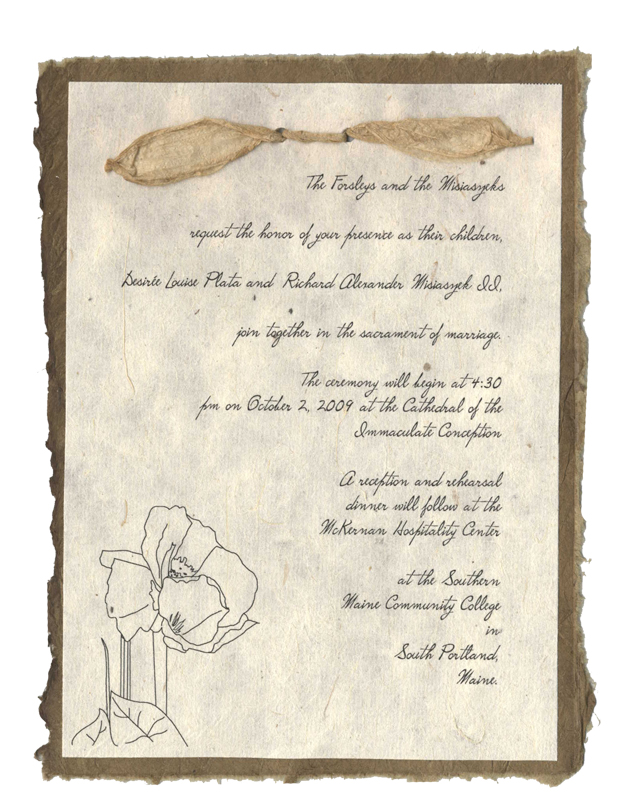 The Forsleys and the Misiaszeks
request the honor of your presence as their children,
Desirée Louise Plata and Richard Alexander Misiaszek II,
join together in the sacrament of marriage.
The ceremony will begin at 4:30
pm on October 2, 2009 at the Cathedral of the
Immaculate Conception
A reception and rehearsal
dinner will follow at the
McKernan Hospitality Center
at the Southern
Maine Community College
in
South Portland,
Maine.